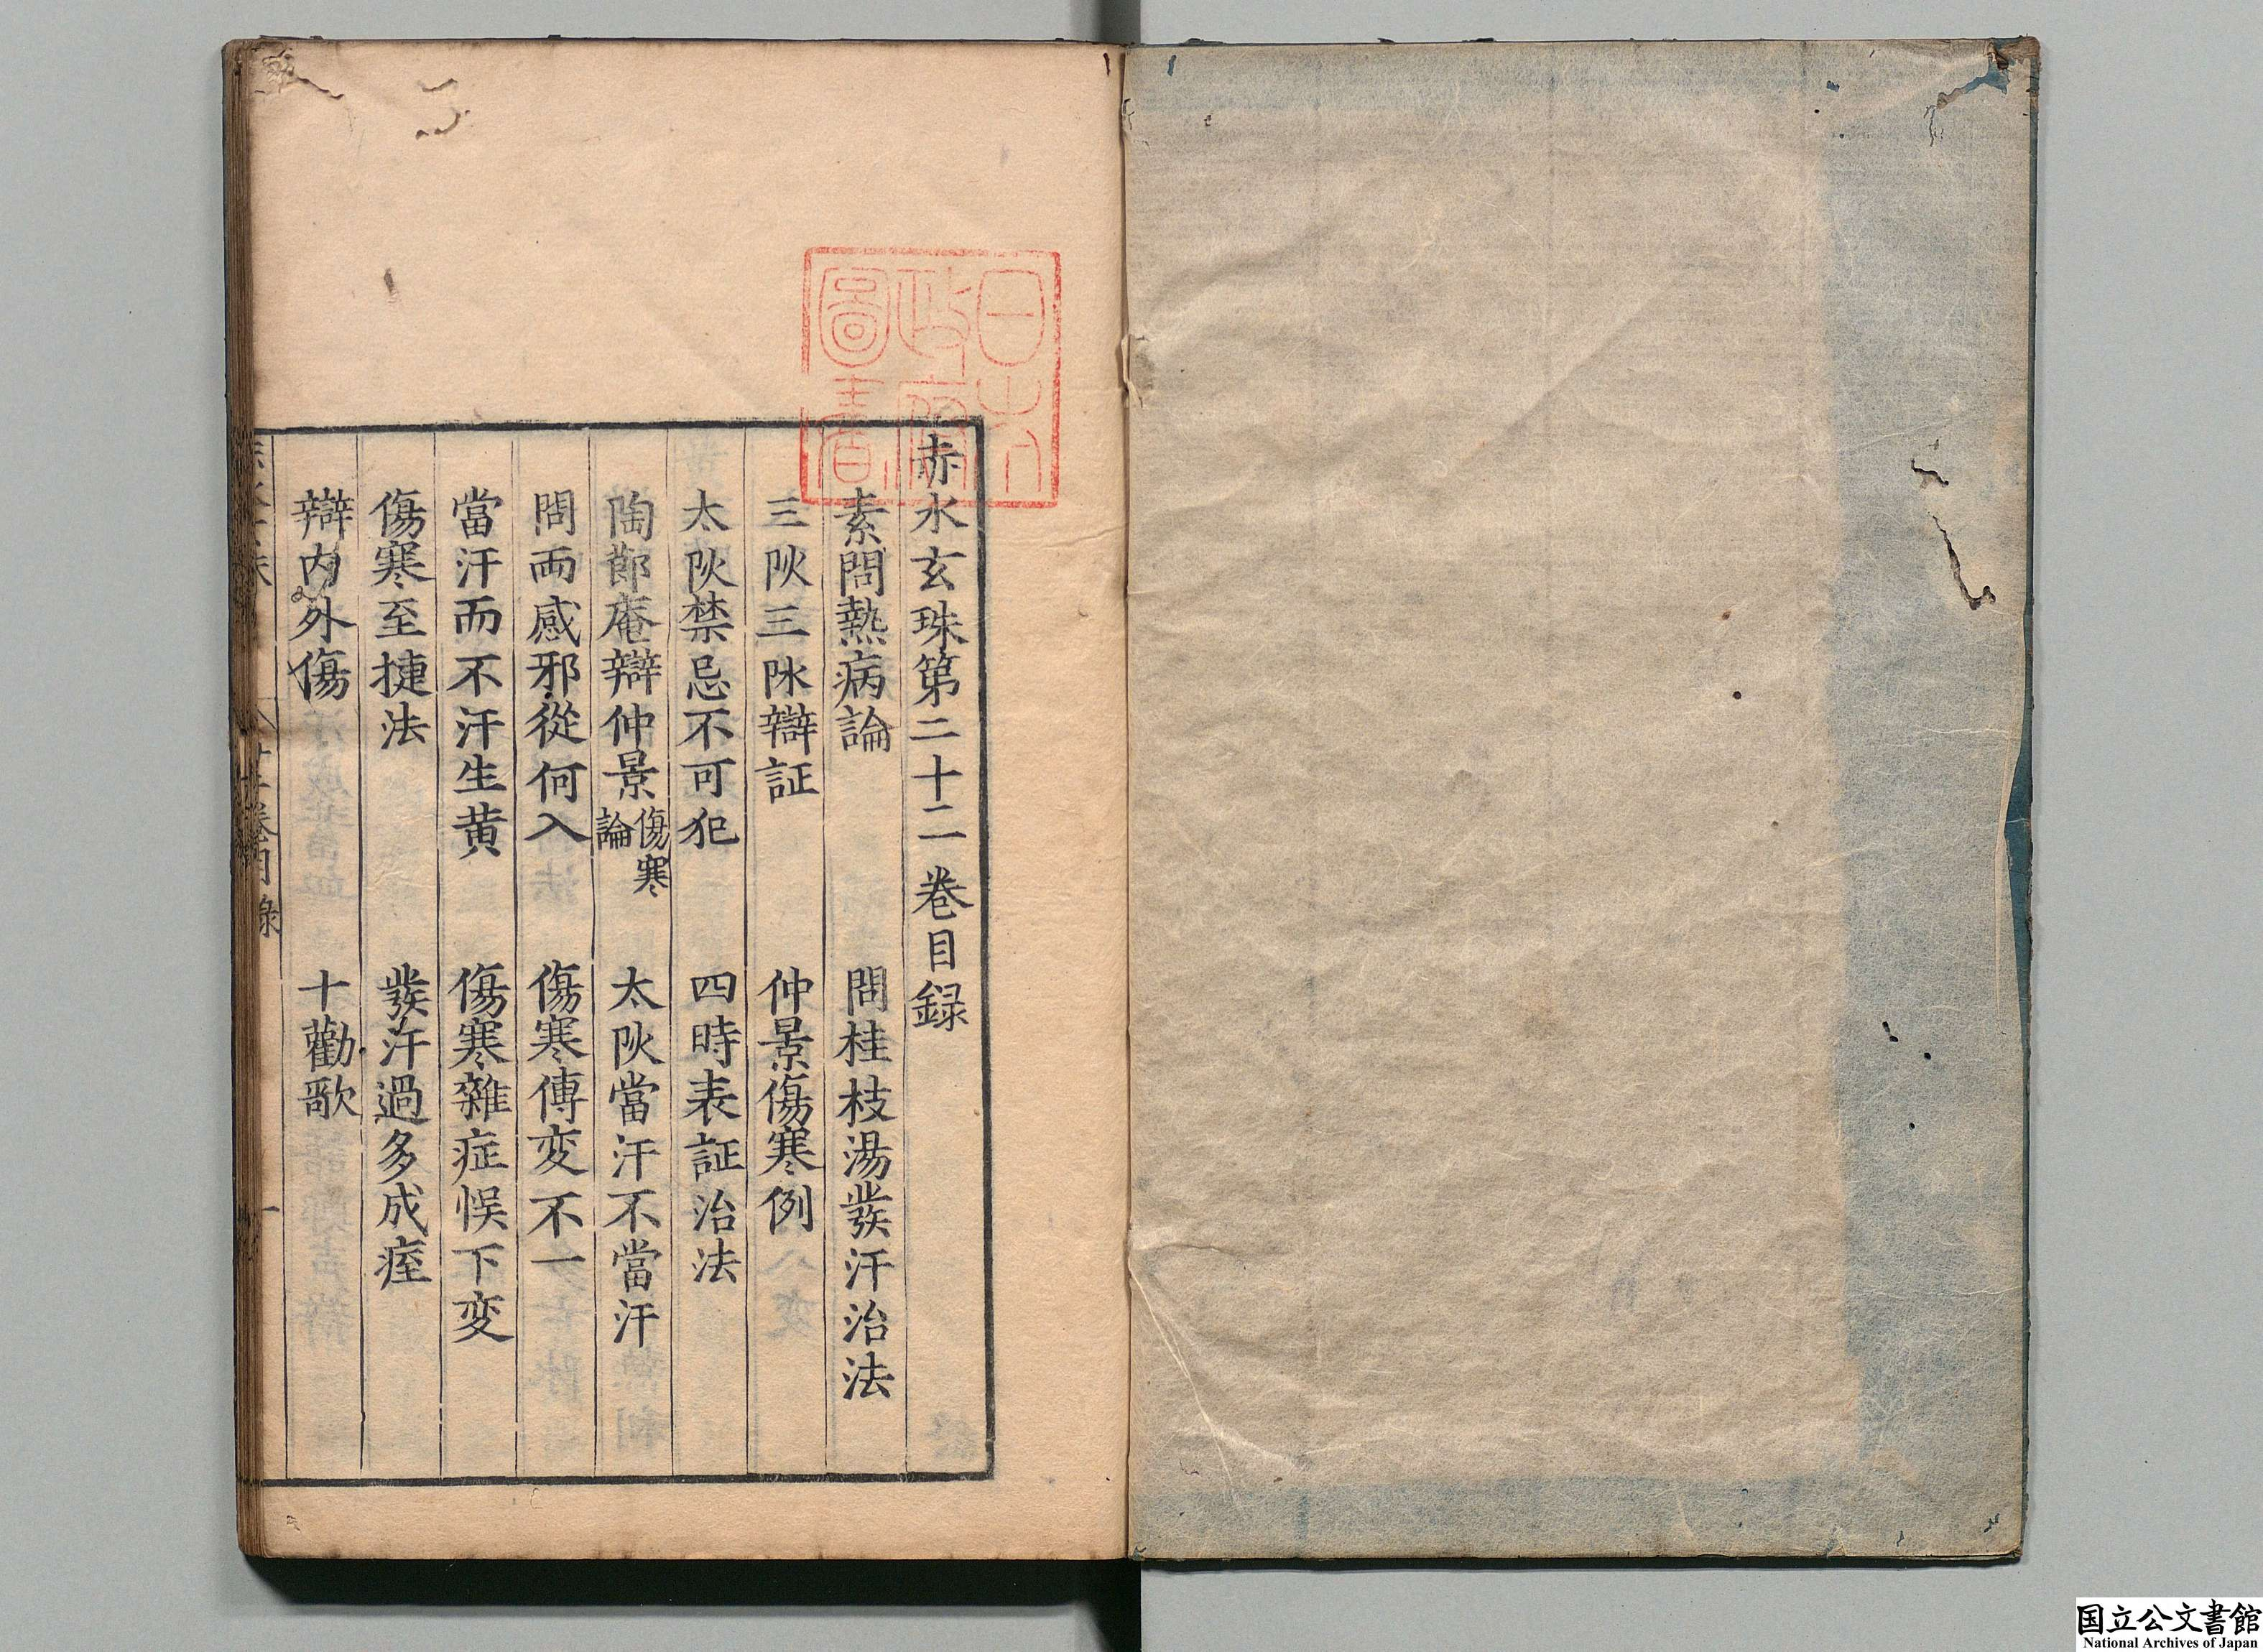 日本
政府
圖書
赤水玄珠第二十二卷目録
素問熱病論　問桂枝湯發汗治法
三阦三阥辯証　仲景傷寒例
太阦禁忌不可犯　四時表証治法
陶節庵辯仲景傷寒論　太阦當汗不當汗
問両感邪從何入　傷寒傳変不一
當汗而不汗生黄　傷寒雜症悞下変
傷寒至捷法　發汗過多成痓
辯内外傷　十勸歌
卷目錄　一
国立公文書館
National Archives of Japan